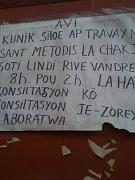 AVI
KLINIK SILOE AP TRAVAY N
SANT METODIS LA CHAK J
SOTI LINDI RIVE VANDRE
8h. POU 2h. LA HA
KONSILTASYON KÒ
KONSILTASYON JE-ZOREY
LABORATWA.